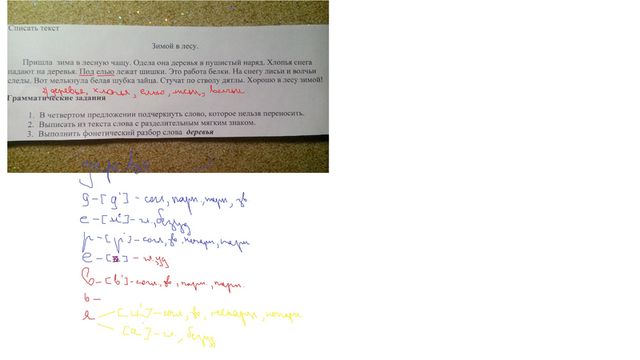 Списать текст
Зимой в лесу.
Пришла зима в лесную чащу. Одела она деревья в пушистый наряд. Хлопья снега
падают на деревья. Под елью лежат шишки. Это работа белки. На снегу лисьи и волчьи
следы. Вот мелькнула белая шубка зайца. Стучат по стволу дятлы. Хорошо в лесу зимой!
деревья, хлопья, елью, лисьи, волчьи
Грамматические задания
1. В четвертом предложении подчеркнуть слово, которое нельзя переносить.
2. Выписать из текста слова с разделительным мягким знаком.
3. Выполнить фонетический разбор слова деревья
д-[д']-согл, парн, парн, зв
е-[и]-гл, безуд
р-[р']-согл, зв, непарн, парн
е-[э]-гл, уд
в-[в']-согл, зв, парн, парн.
ь-
я -[й']-согл, зв, непарн, непарн
[а]-гл, безуд